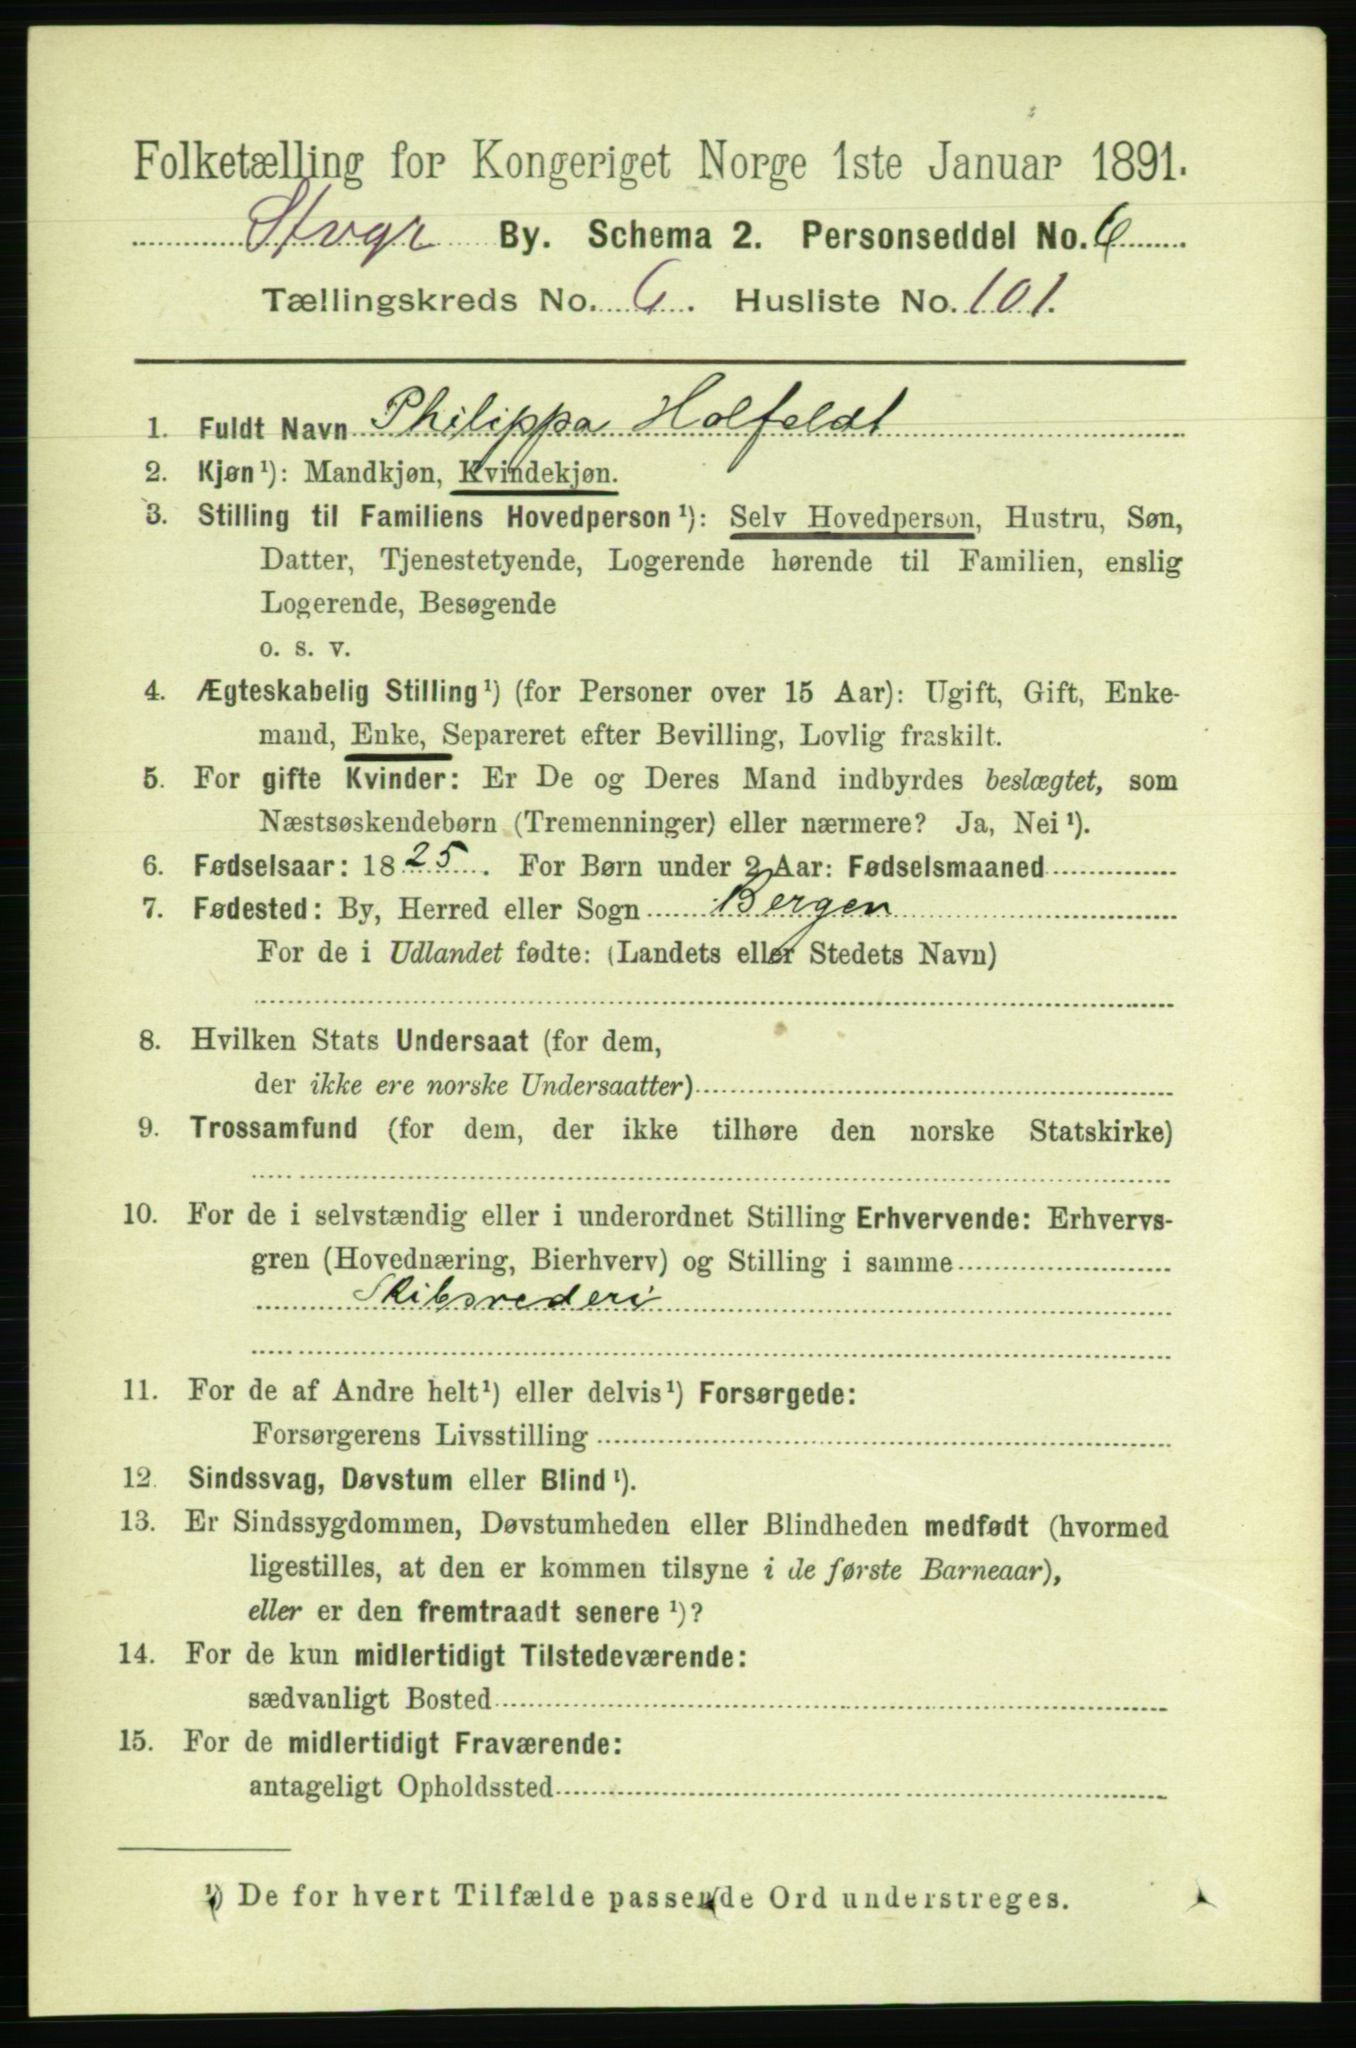 Folketælling for Kongeriget Norge 1ste Januar 1891.
Stvgr By. Schema 2. Personseddel No. 6
Tællingskreds No. 6. Husliste No. 101.
1. Fuldt Navn Philippa Holfeldt
2. Kjøn¹): Mandkjøn, Kvindekjøn.
3. Stilling til Familiens Hovedperson¹): Selv Hovedperson, Hustru, Søn,
Datter, Tjenestetyende, Logerende hørende til Familien, enslig
Logerende, Besøgende
o. s. v.
4. Ægteskabelig Stilling¹) (for Personer over 15 Aar): Ugift, Gift, Enke-
mand, Enke, Separeret efter Bevilling, Lovlig fraskilt.
5. For gifte Kvinder: Er De og Deres Mand indbyrdes beslægtet, som
Næstsøskendebørn (Tremenninger) eller nærmere? Ja, Nei¹).
6. Fødselsaar: 1825. For Børn under 2 Aar: Fødselsmaaned
7. Fødested: By, Herred eller Sogn Bergen
For de i Udlandet fødte: (Landets eller Stedets Navn)
8. Hvilken Stats Undersaat (for dem,
der ikke ere norske Undersaatter)
9. Trossamfund (for dem, der ikke tilhøre den norske Statskirke)
10. For de i selvstændig eller i underordnet Stilling Erhvervende: Erhvervs-
gren (Hovednæring, Bierhverv) og Stilling i samme
Skibsrederi
11. For de af Andre helt¹) eller delvis¹) Forsørgede:
Forsørgerens Livsstilling
12. Sindssvag, Døvstum eller Blind¹).
13. Er Sindssygdommen, Døvstumheden eller Blindheden medfødt (hvormed
ligestilles, at den er kommen tilsyne i de første Barneaar),
eller er den fremtraadt senere¹)?
14. For de kun midlertidigt Tilstedeværende:
sædvanligt Bosted
15. For de midlertidigt Fraværende:
antageligt Opholdssted
¹) De for hvert Tilfælde passende Ord understreges.